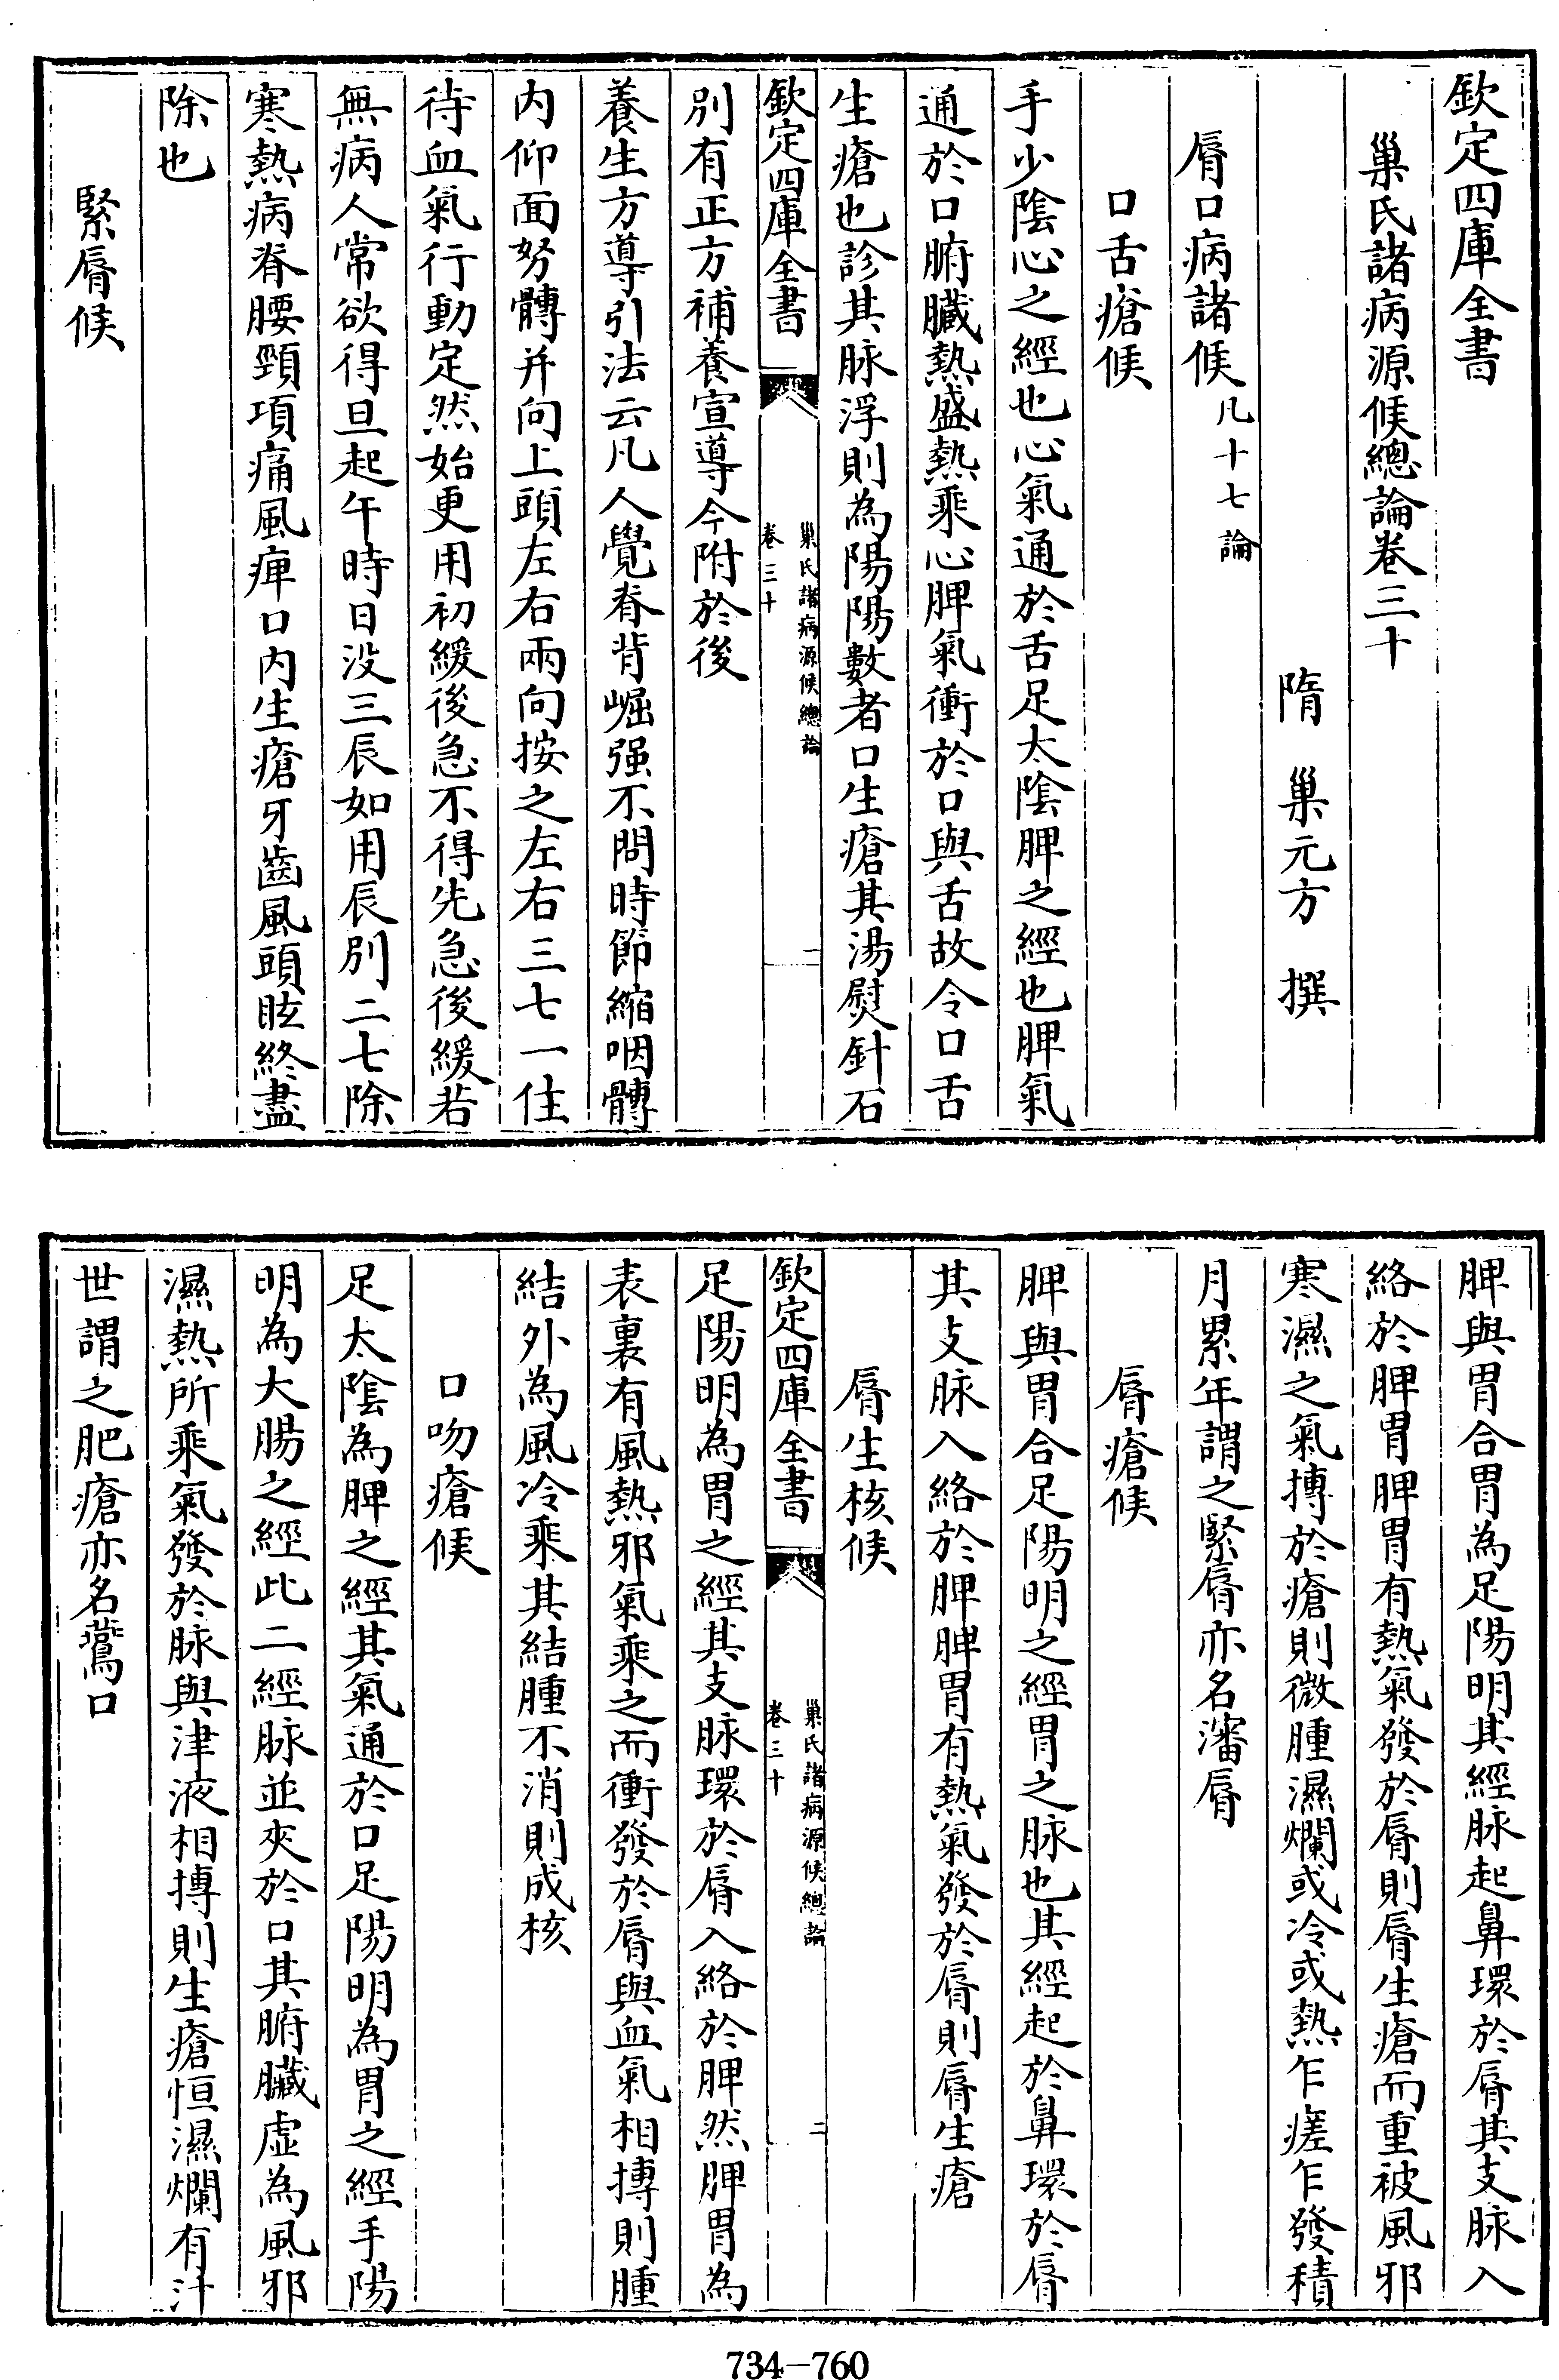 欽定四庫全書
巢氏諸病源候總論卷三十
隋　巢元方　撰
脣口病諸候凡十七論
口舌瘡候
手少陰心之經也心氣通於舌足太陰脾之經也脾氣
通於口腑臟熱盛熱乘心脾氣衝於口與舌故令口舌
生瘡也診其脉浮則為陽陽數者口生瘡其湯熨針石
欽定四庫全書
巢氏諸病源候總論
卷三十
一
別有正方補養宣導今附於後
養生方導引法云凡人覺脊背崛强不問時節縮咽髆
内仰面努髆并向上頭左右兩向按之左右三七一住
待血氣行動定然始更用初緩後急不得先急後緩若
無病人常欲得旦起午時日没三辰如用辰別二七除
寒熱病脊腰頸項痛風痺口内生瘡牙齒風頭眩終盡
除也
緊脣候
脾與胃合胃為足陽明其經脉起鼻環於脣其支脉入
絡於脾胃脾胃有熱氣發於脣則脣生瘡而重被風邪
寒濕之氣摶於瘡則微腫濕爛或冷或熱乍瘥乍發積
月累年謂之緊脣亦名瀋脣
脣瘡候
脾與胃合足陽明之經胃之脉也其經起於鼻環於脣
其支脉入絡於脾脾胃有熱氣發於脣則脣生瘡
脣生核候
欽定四庫全書
巢氏諸病源候總論
卷三十
二
足陽明為胃之經其支脉環於脣入絡於脾然脾胃為
表裏有風熱邪氣乘之而衝發於脣與血氣相摶則腫
結外為風冷乘其結腫不消則成核
口吻瘡候
足太陰為脾之經其氣通於口足陽明為胃之經手陽
明為大腸之經此二經脉並夾於口其腑臟虛為風邪
濕熱所乘氣發於脉與津液相摶則生瘡恒濕爛有汁
世謂之肥瘡亦名鷰口
734-760